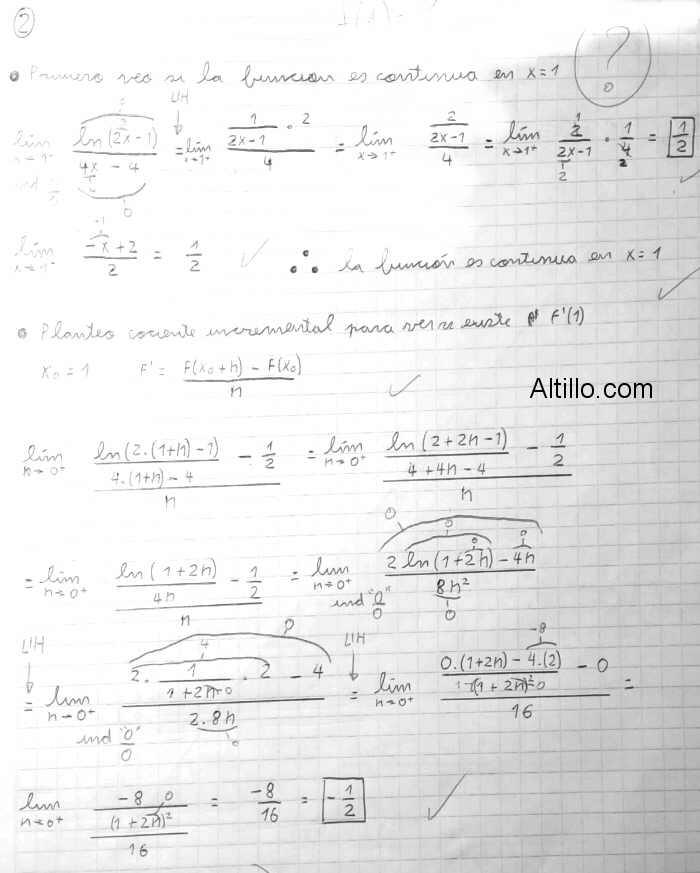 2
• Primero veo si la funcion es continua en x=1 ?
L'H
lim x→1+ ln(2x-1) / 4x-4 = lim x→1+ (1/(2x-1) · 2) / 4 = lim x→1+ (2/(2x-1)) / 4 = lim x→1+ 2/(2x-1) · 1/4 = 1/2
ind
lim x→1- (-x+2)/2 = 1/2 ✓ ∴ la función es continua en x=1
• Planteo cociente incremental para ver si existe F'(1)
x₀=1 F' = (F(x₀+h) - F(x₀)) / h
Altillo.com
lim h→0+ (ln(2.(1+h)-1) / (4.(1+h)-4) - 1/2) / h = lim h→0+ (ln(2+2h-1) / (4+4h-4) - 1/2) / h
= lim h→0+ (ln(1+2h) / 4h - 1/2) / h = lim h→0+ (2 ln(1+2h) - 4h) / 8h²
ind "0"/0
L'H L'H
= lim h→0+ (2 · 1/(1+2h) · 2 - 4) / 2.8h = lim h→0+ ((0.(1+2h) - 4.(2)) / (1+2h)² - 0) / 16 =
ind "0"/0
lim h→0+ (-8 / (1+2h)²) / 16 = -8/16 = -1/2 ✓